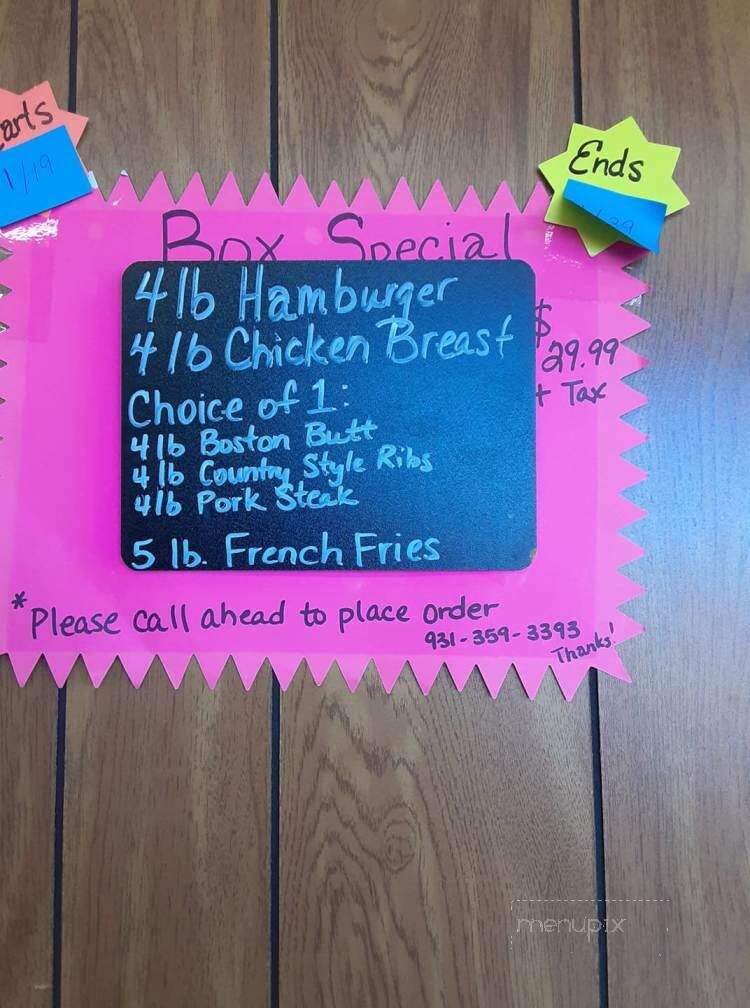 arts
1/19
Ends
Box Special
4 lb Hamburger
4 lb Chicken Breast
$
29.99
+ Tax
Choice of 1:
4 lb Boston Butt
4 lb Country Style Ribs
4 lb Pork Steak
5 lb. French Fries
*Please call ahead to place order
931-359-3393
Thanks!
menupix